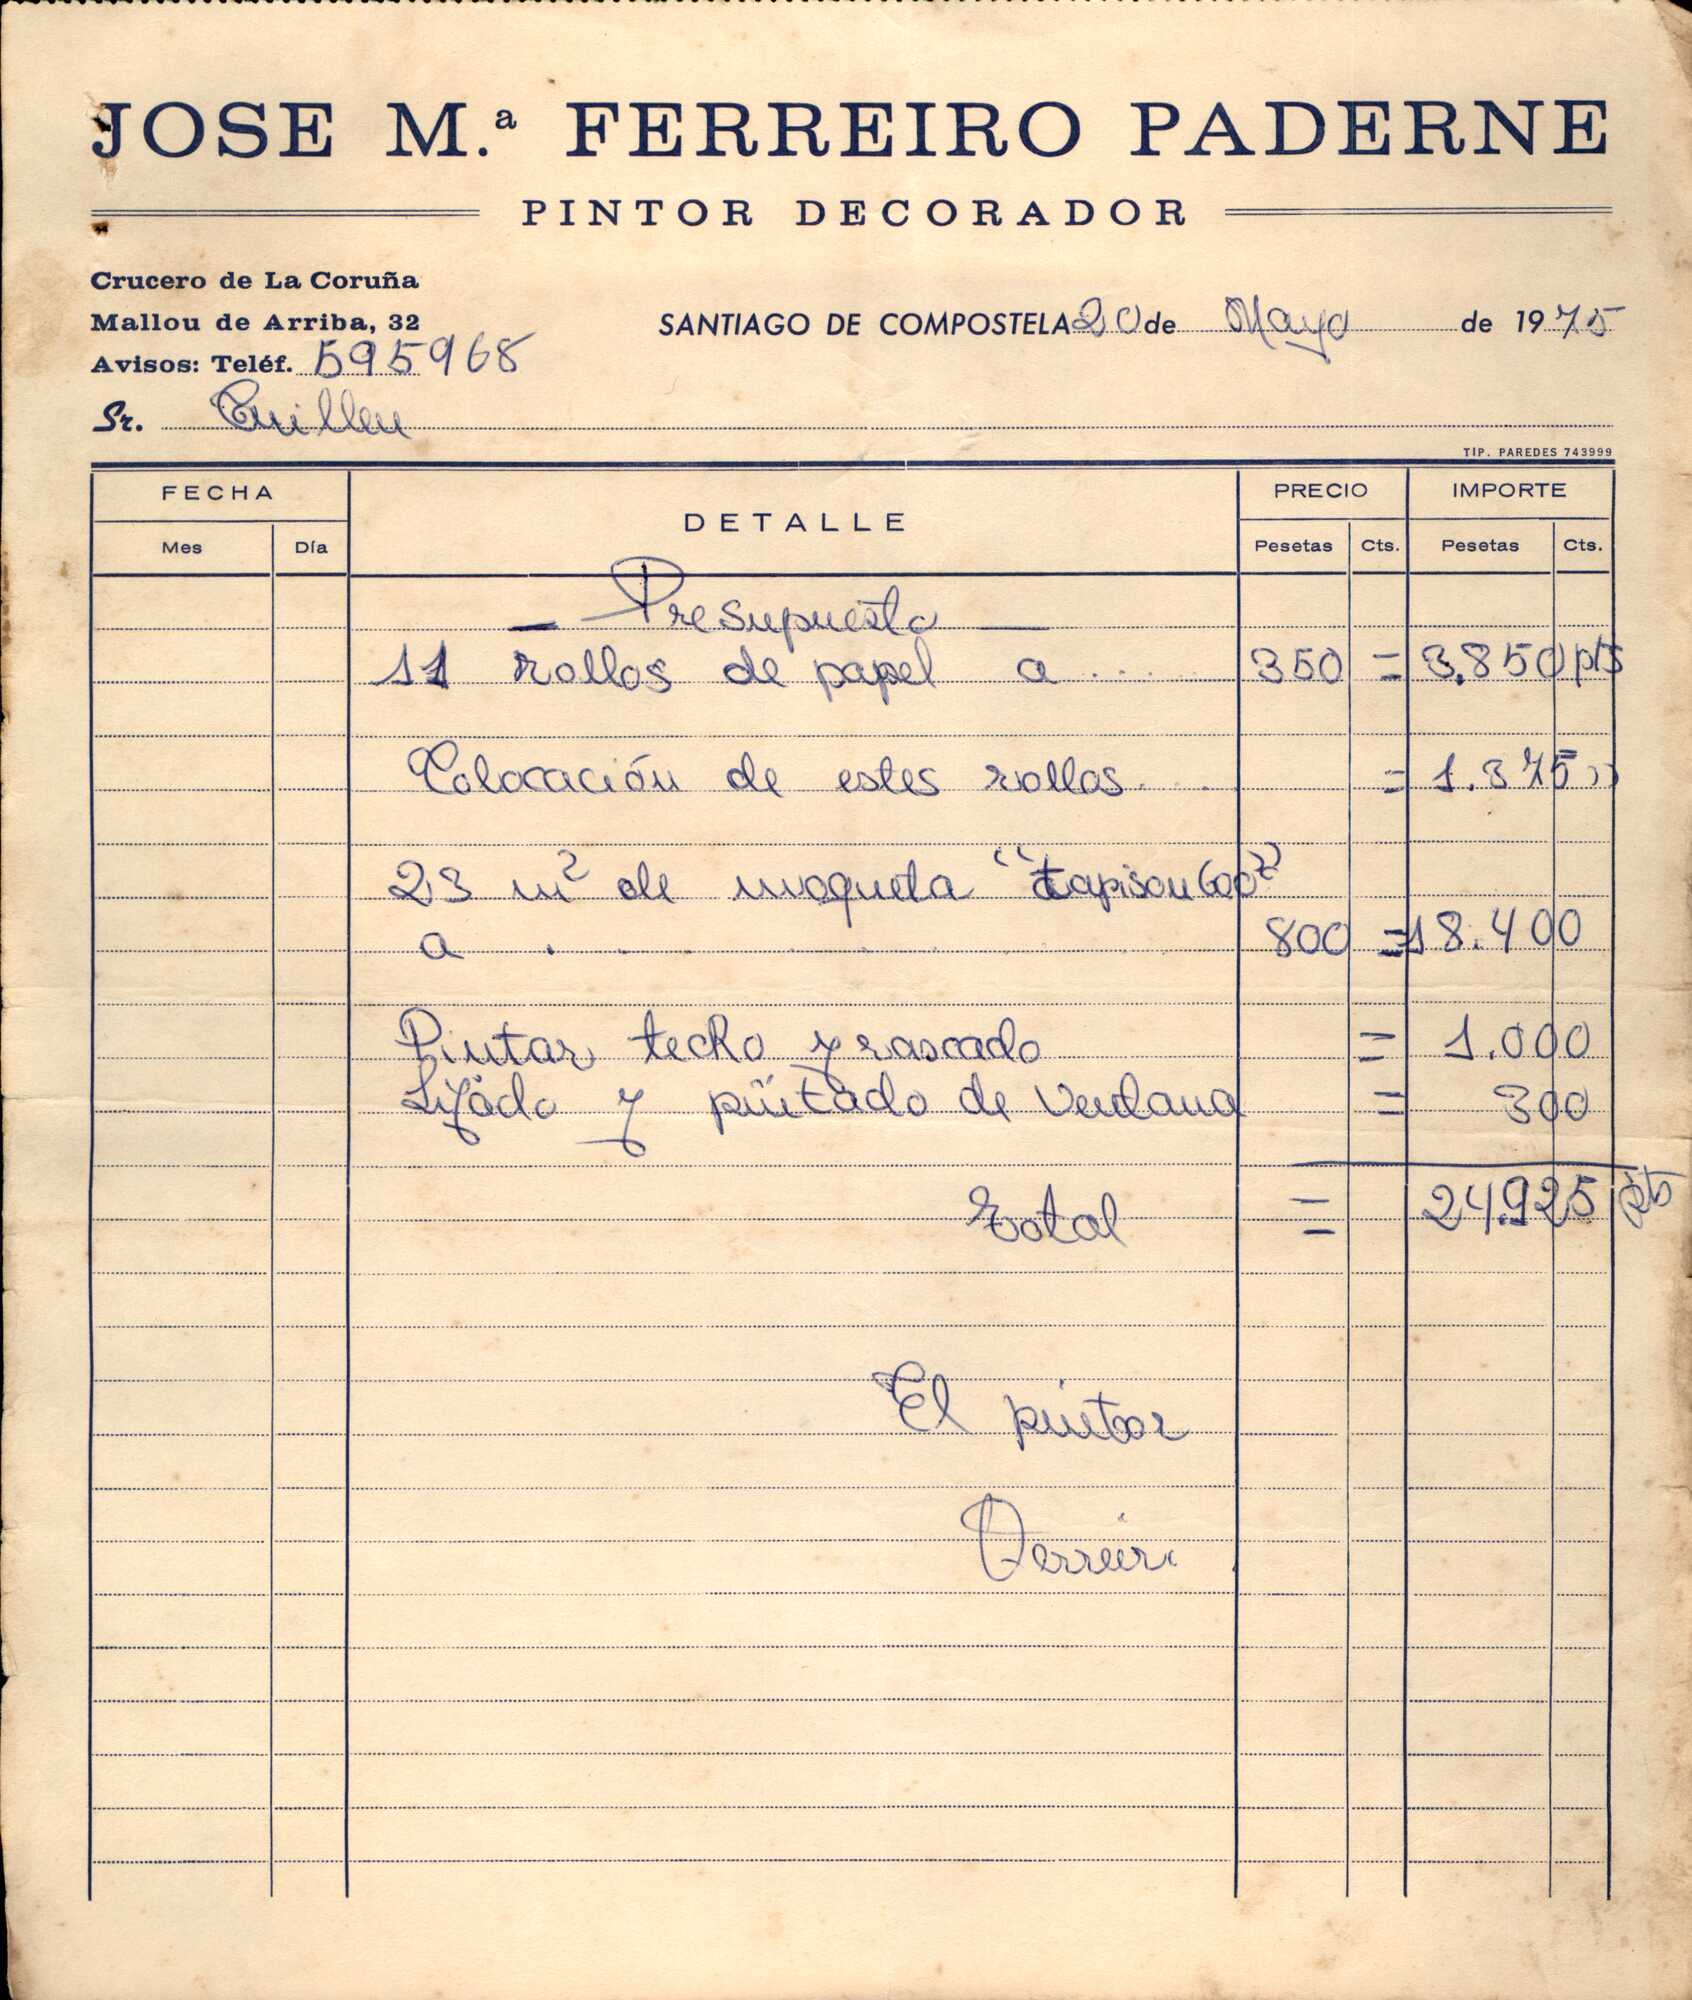 JOSE M.ª FERREIRO PADERNE
PINTOR DECORADOR
Crucero de La Coruña
Mallou de Arriba, 32
Avisos: Teléf. 595968
SANTIAGO DE COMPOSTELA 20 de Mayo de 1975
Sr. Guillen
TIP. PAREDES 743999
FECHA DETALLE PRECIO IMPORTE
Mes Día Pesetas Cts. Pesetas Cts.
— Presupuesto —
11 rollos de papel a .... 350 = 3.850 pts
Colocación de estes rollos.... = 1.375 "
23 m² de moqueta "tapison 600"
a . . . . . . 800 = 18.400
Pintar techo y rascado = 1.000
Lijado y pintado de Ventana = 300
Total = 24.925 pts
El pintor
Ferreiro